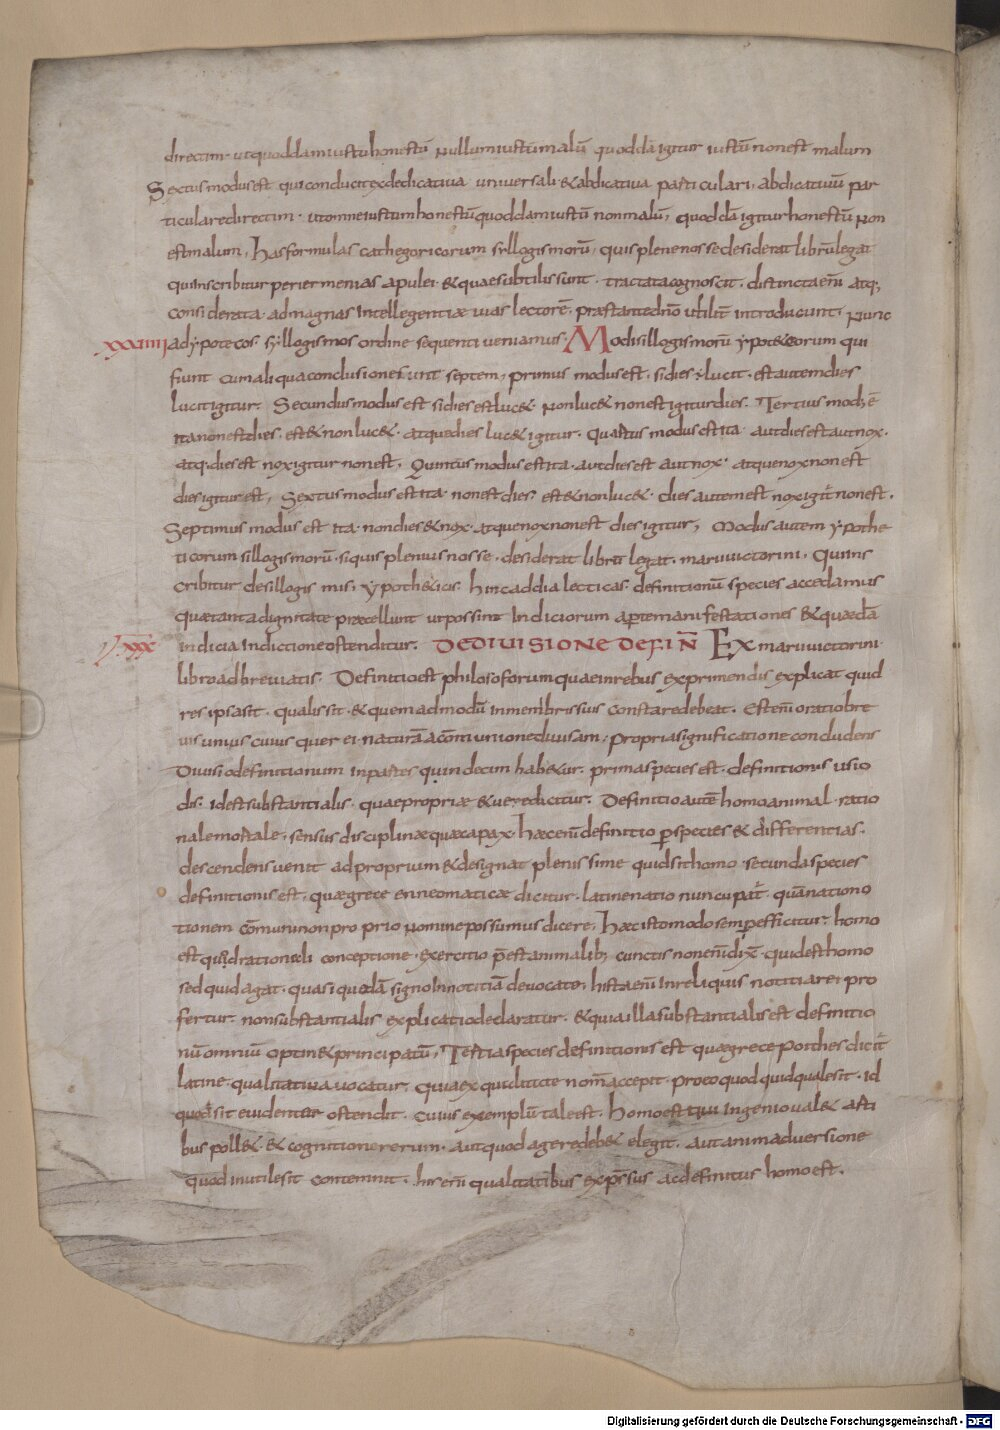 directim · ut quoddam iustū honestū Nullum iustum malū quoddā igitur iustū non est malum
Sextus modus est qui conducit ex dedicativa universali & abdicativa particulari, abdicativū par
ticulare directim · ut omne iustum honestū quoddam iustū non malū, quoddā igitur honestū Non
est malum, Has formulas cathegoricorum syllogismorū, qui splene nosse desiderat librū legat
qui inscribitur periermenias apulei · & quae subtilis sunt · tractata cognoscit · distincta enī atq;
considerata · ad magnas Intellegentiæ vias lectorē · præstante dn̄o utilit̄ introducunt, Nunc
xxviiij ad ypotecos syllogismos ordine sequenti veniamus · Modi sillogismorū ypoteticorum qui
fiunt cum aliqua conclusione sunt septem, primus modus est, si dies ÷ lucit · est autem dies
lucit igitur · Secundus modus est si dies est lucet · Non lucet non est igitur dies. Tertius mod; ē
ita non est dies, est & non lucet · atque dies lucet igitur · Quartus modus est ita aut dies est aut nox ·
atq; dies est nox igitur non est, Quintus modus est ita · aut dies est aut nox · atque nox non est
dies igitur est, Sextus modus est ita · non est dies, est & non lucet · dies autem est nox igit̄ non est,
Septimus modus est ita · non dies & nox · atque nox non est dies igitur, Modus autem ypothe
ticorum sillogismorū · si quis plenius nosse · desiderat librū legat · marii victorini · Qui ins
cribitur de sillogismis, ypotheticis · hinc ad dialecticas · definitionū species accedamus
quæ tanta dignitate præcellunt ut possint Indiciorum aperte manifestationes & quædā
xxx indicia In dictione ostenditur · DE DIVISIONE DEFIN̄ Ex marii victorini
libro adbreviatis · Definitio est philosoforum quae in rebus exprimendis explicat quid
res ipsa sit · qualis sit · & quemadmodū in membris suis constare debeat · Est enī oratio bre
vis unius cuiusque rei naturā a cōmunione divisam, propria significatione concludens
Divisio definitionum in partes quindecim habetur · prima species est · definitionis usio
dis · id est substantialis · quae propriæ & vere dicitur · Definitio autē homo animal · ratio
nale mortale, sensus disciplinæquæ capax · hæc enī definitio p̄ species & differentias ·
descendens venit ad proprium & designat plenissime quid sit homo · secunda species
definitionis est · quæ grece enneomaticæ dicitur · latine natio nuncupat̄ · quā nationo
tionem cōmuni non proprio Nomine possumus dicere, hæc isto modo semp̄ efficitur · homo
est quod rationali conceptione · exercitio p̄est animalib; cunctis non enī dix̄ · quid est homo
sed quid agat · quasi quodā signo In notitiā devocate, hista enī In reliquis notitia rei pro
fertur · non substantialis explicatio declaratur · & quia illa substantialis est definitio
nū omniū optinet principatū, Tertia species definitionis est quæ grece poiothes dicit̄
latine · qualitativa vocatur, Quia ex qui dilicte nom̄ accepit · pro eo quod quid quale sit · id
quod sit evidenter ostendit · Cuius exemplū tale est · homo est qui Ingenio valet arti
bus pollet · & cognitione rerum · aut quod agere debet elegit · aut animadversione
quod inutile sit contemnit · his enī qualitatibus exp̄ssus ac definitus homo est ·
Digitalisierung gefördert durch die Deutsche Forschungsgemeinschaft - DFG